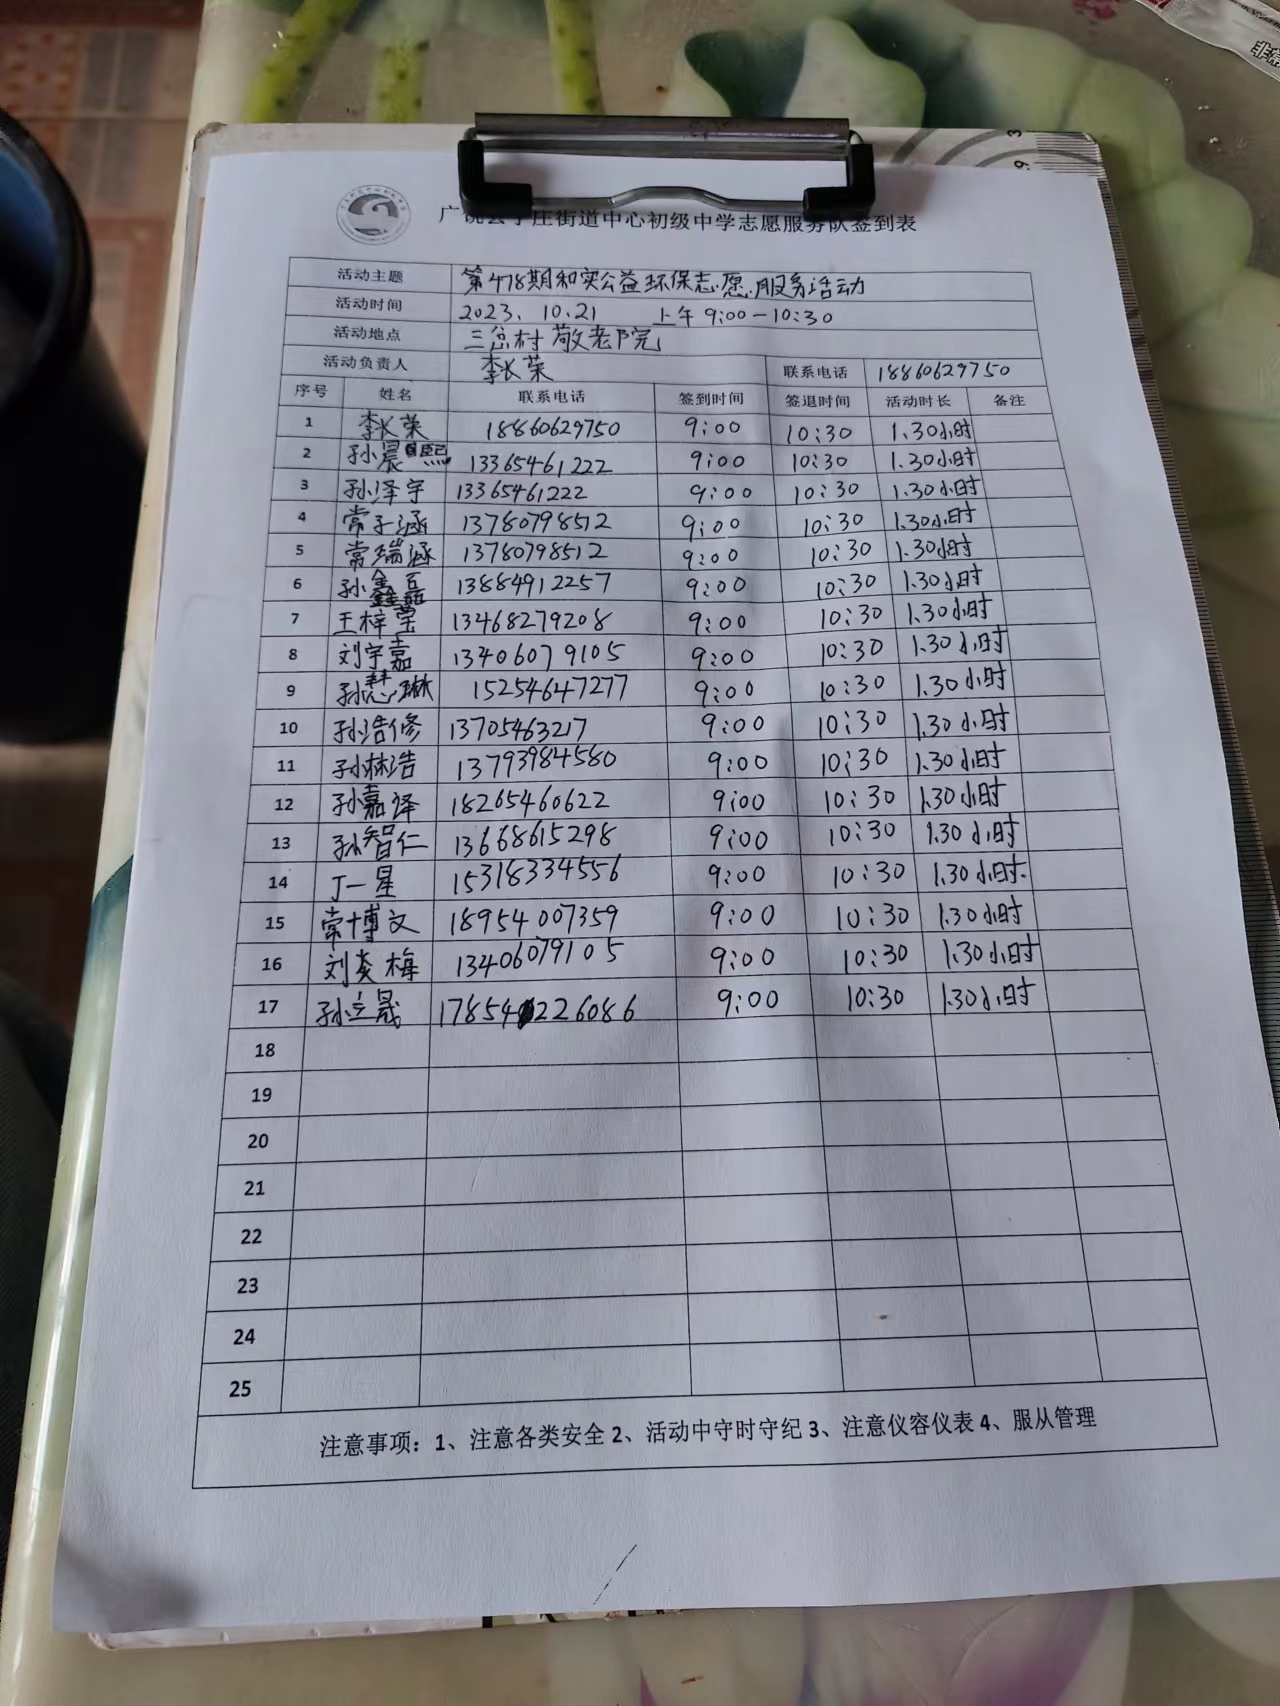 广饶县丁庄街道中心初级中学志愿服务队签到表
活动主题 第478期和实公益环保志愿服务活动
活动时间 2023、10.21 上午9:00-10:30
活动地点 三岔村敬老院
活动负责人 李长荣 联系电话 18860629750
序号 姓名 联系电话 签到时间 签退时间 活动时长 备注
1 李长荣 18860629750 9:00 10:30 1.30小时
2 孙晨熙 13365461222 9:00 10:30 1.30小时
3 孙泽宇 13365461222 9:00 10:30 1.30小时
4 常子涵 13780798512 9:00 10:30 1.30小时
5 常瑞涵 13780798512 9:00 10:30 1.30小时
6 孙鑫磊 13884912257 9:00 10:30 1.30小时
7 王梓莹 13468279208 9:00 10:30 1.30小时
8 刘宇嘉 13406079105 9:00 10:30 1.30小时
9 孙慧琳 15254647277 9:00 10:30 1.30小时
10 孙浩修 13705463217 9:00 10:30 1.30小时
11 孙林浩 13793984580 9:00 10:30 1.30小时
12 孙嘉译 18265460622 9:00 10:30 1.30小时
13 孙智仁 13668615298 9:00 10:30 1.30小时
14 丁一星 15318334556 9:00 10:30 1.30小时.
15 常博文 18954007359 9:00 10:30 1.30小时
16 刘炎梅 13406079105 9:00 10:30 1.30小时
17 孙立晟 17854226086 9:00 10:30 1.30小时
18
19
20
21
22
23
24
25
注意事项：1、注意各类安全 2、活动中守时守纪 3、注意仪容仪表 4、服从管理